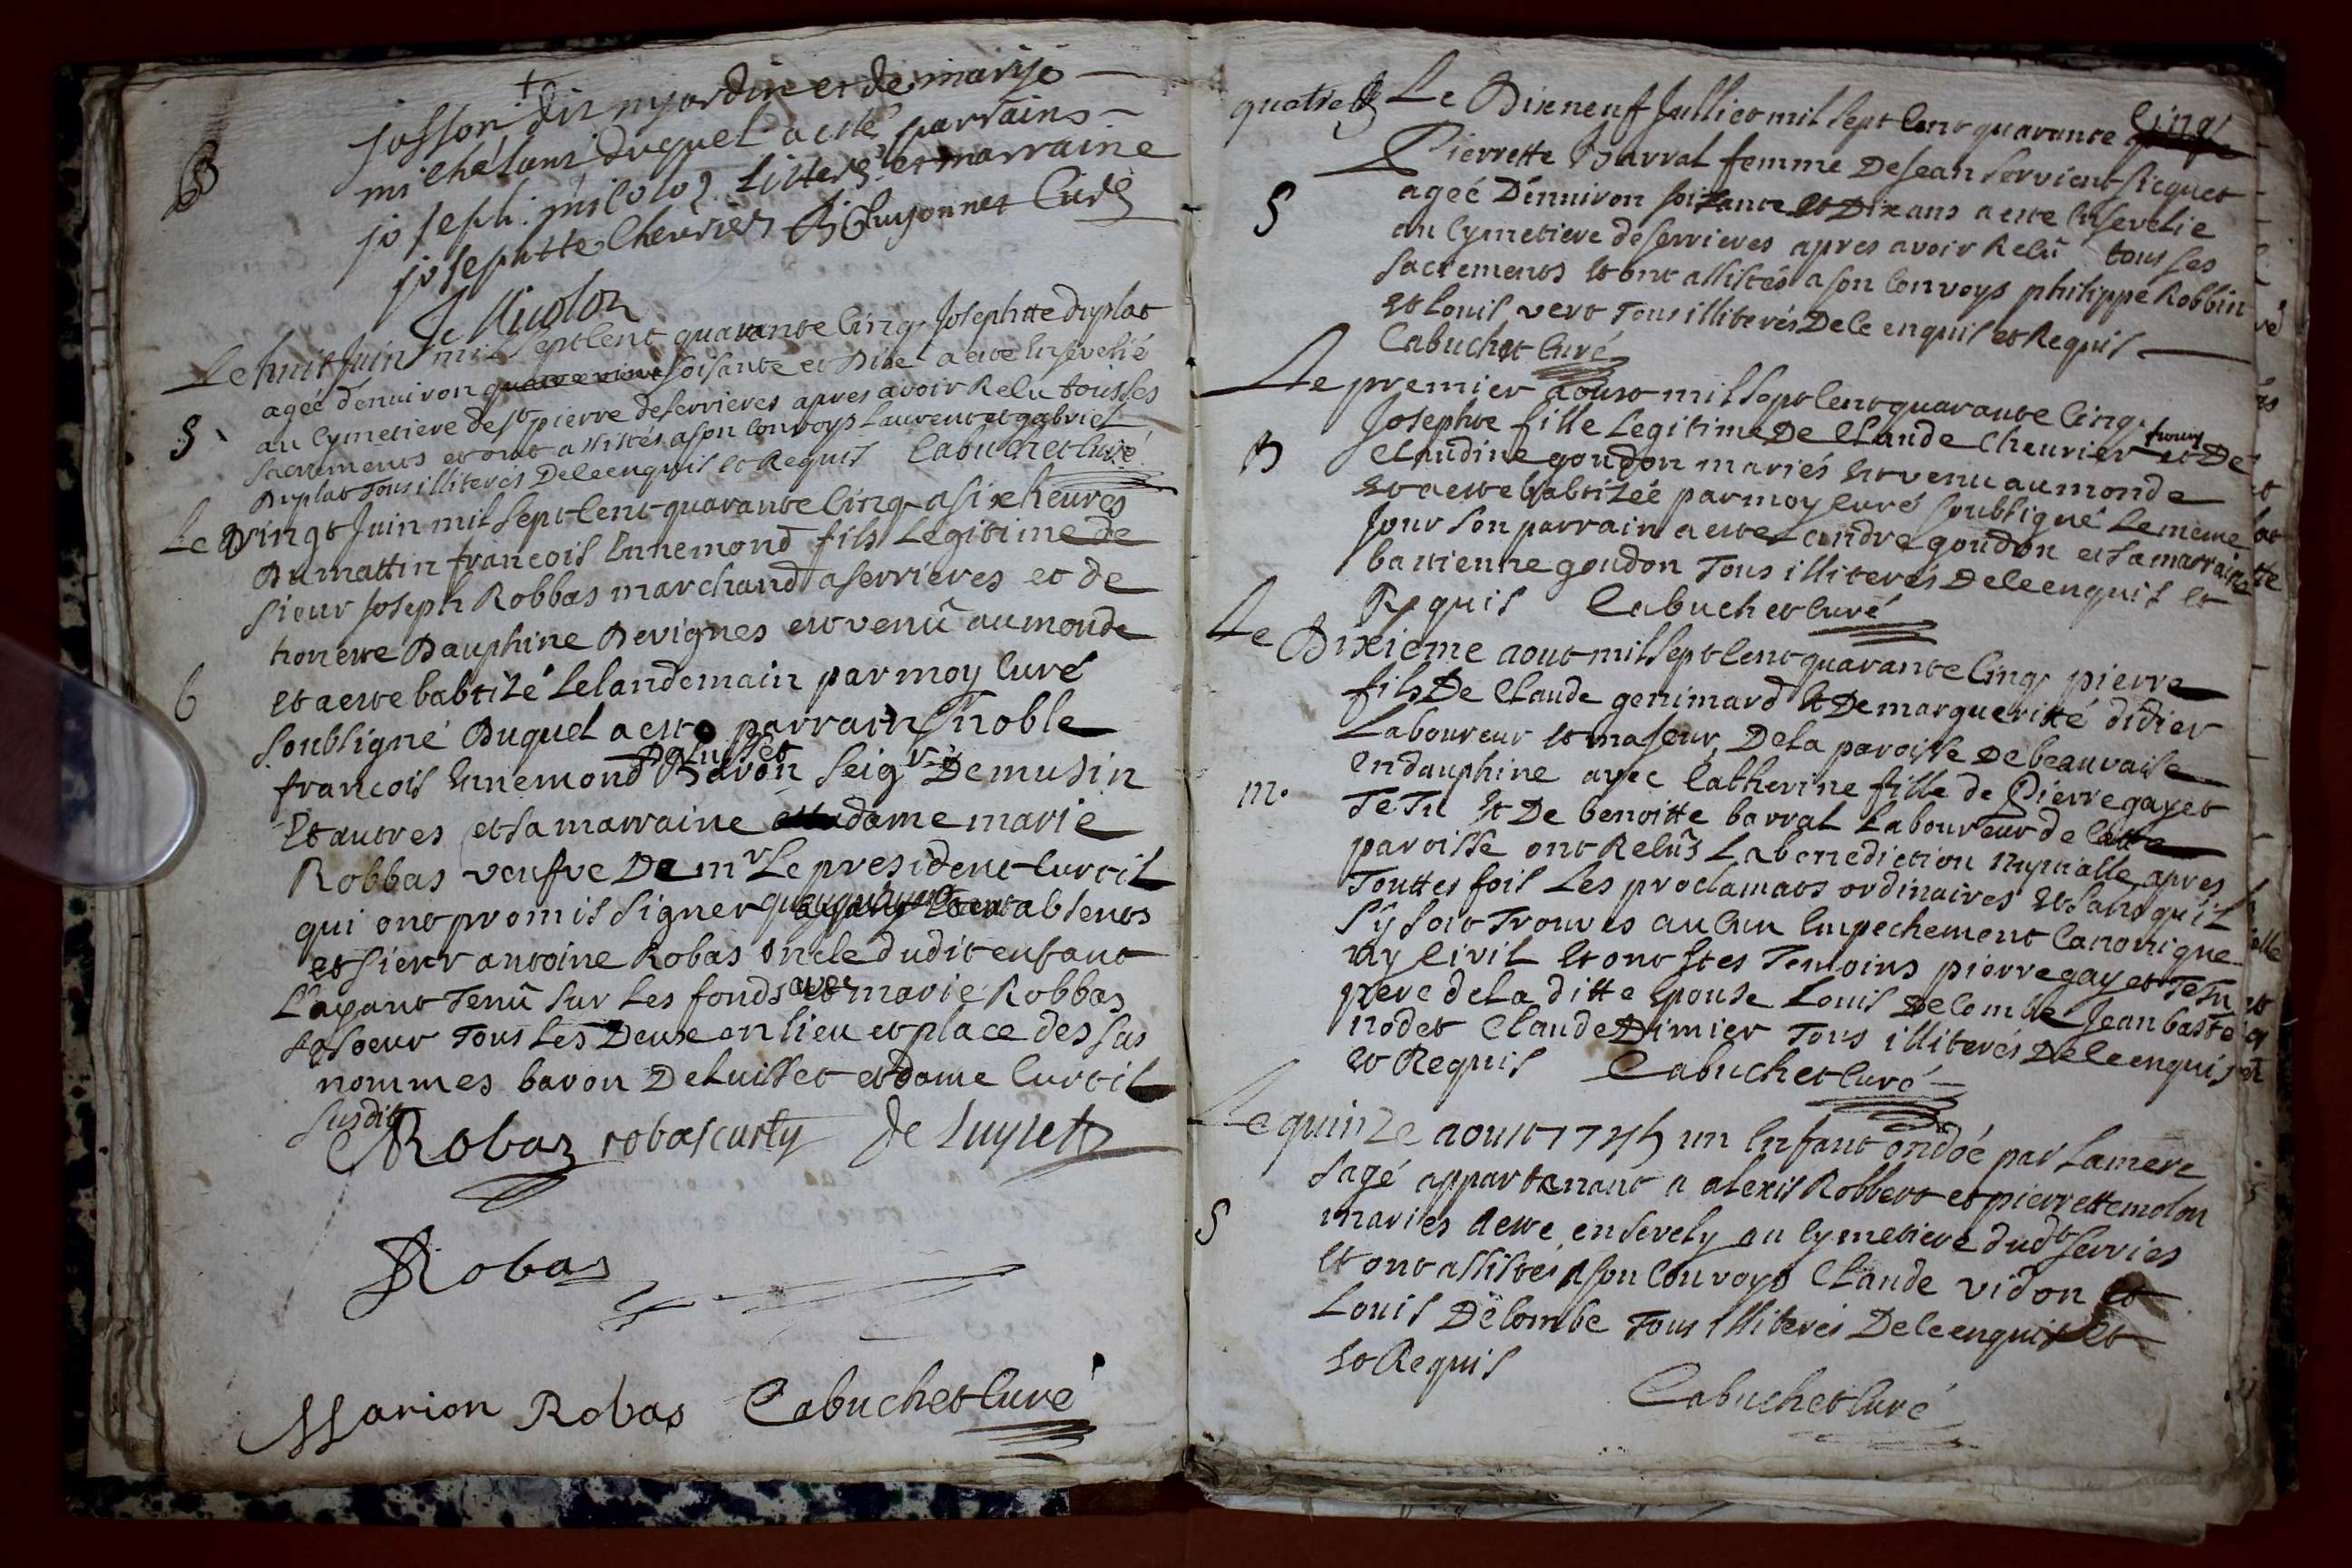 josson dit myordin et de marije
michélant duquel a esté parrains
joseph nicolos littere et marraine
B
josephtte Chevrier Guyonnet Curé
J Nicolon
Le huit Juin mil sept Cent quarante Cinq Josephtte duplat
agée denuiron soisante et Dixe a este Ensevelié
S
au Cymetiere de st pierre de serrieres apres avoir Relu tous ses
sacrements et ont assistés a son Convoys Laurent et gabriel
Duplat Tous illiterés De Ce enquis et Requis Cabuchet Curé
Le vingt Juin mil sept Cent quarante Cinq a sixe heures
Du mattin francois Ennemond fils Legitime de
sieur Joseph Robbas marchand a serrieres et de
honeste Dauphine Devignes est venu au monde
6
et a este babtizé Le landemain par moy Curé
soubsigné Duquel a este parrain noble
Deluisset
francois Ennemond Baron seigr De musin
Et autres et sa marraine dame marie
Robbas veufve De mr Le president Curtil
qui ont promis signer absents
et sieur antoine Robas oncle dudit enfant
L'ayant Tenu sur Les fonds avec marie Robbas
sa soeur Tous Les Deux en lieu et place des sus
nommes baron De Luisset et dame Curtil
susdits
Robaz robascurty de Luysett
Robas
Marion Robas Cabuchet Curé
quatre
Le Dixneuf Jullict mil sept Cent quarante Cinq
Pierrette Barral femme De Jean servient sicquet
agéé D'ennuiron soixante Et Dix ans a este Ensevelie
S
au Cymetiere de serrieres apres avoir Relu tous ses
sacrements Et ont assistés a son Convoys philippe Robbin
et Louis vert Tous illiterés De Ce enquis et Requis
Cabuchet Curé
Le premier aoust mil sept Cent quarante Cinq
Josephte fille Legitime De Claude Cheurier et De
B
Claudine goudon mariés Est venu au monde
et a este babtizéé par moy Curé soubsigné Le meme
Jour son parrain a este andre goudon et sa marraine
bastienne goudon Tous illiterés De Ce enquis et
Requis Cabuchet Curé
Le Dixieme aout mil sept Cent quarante Cinq pierre
fils De Claude genimard Et De margueritte didier
Laboureur et maseur De la paroisse De beauvaise
en dauphine avec Catherine fille de Pierre gayet
m.
TeTu Et De benoitte barral Laboureur de Cette
paroisse ont Relus La benediction nuptialle apres
Touttes fois Les proclamats ordinaires Et sans qu'il
s'y soit Trouves aucun Empechement Canonique
ny Civil Et ont stes Temoins pierre gayet TeTu
pere de La ditte Epouse Louis Delombe Jean baste
nodet Claude Dimier Tous illiterés De Ce enquis
et Requis Cabuchet Curé
Le quinze aoust 1745 un Enfant ondoé par La mere
sagé appartenant a alexis Robbert et pierrette molon
S
maries a este ensevely au Cymetiere dudt serries
et ont assistés a son Convoys Claude vidon Et
Louis Delombe Tous illiterés De Ce enquis Et
et Requis
Cabuchet Curé